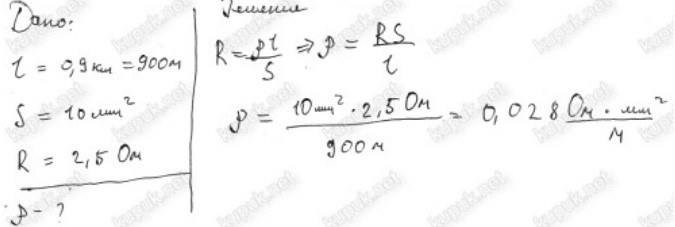 Дано:
l = 0,9 км = 900 м
S = 10 мм²
R = 2,5 Ом
ρ - ?
Решение
R = ρl/S ⇒ ρ = RS/l
ρ = 10 мм² · 2,5 Ом / 900 м = 0,028 Ом · мм² / м
kupuk.net